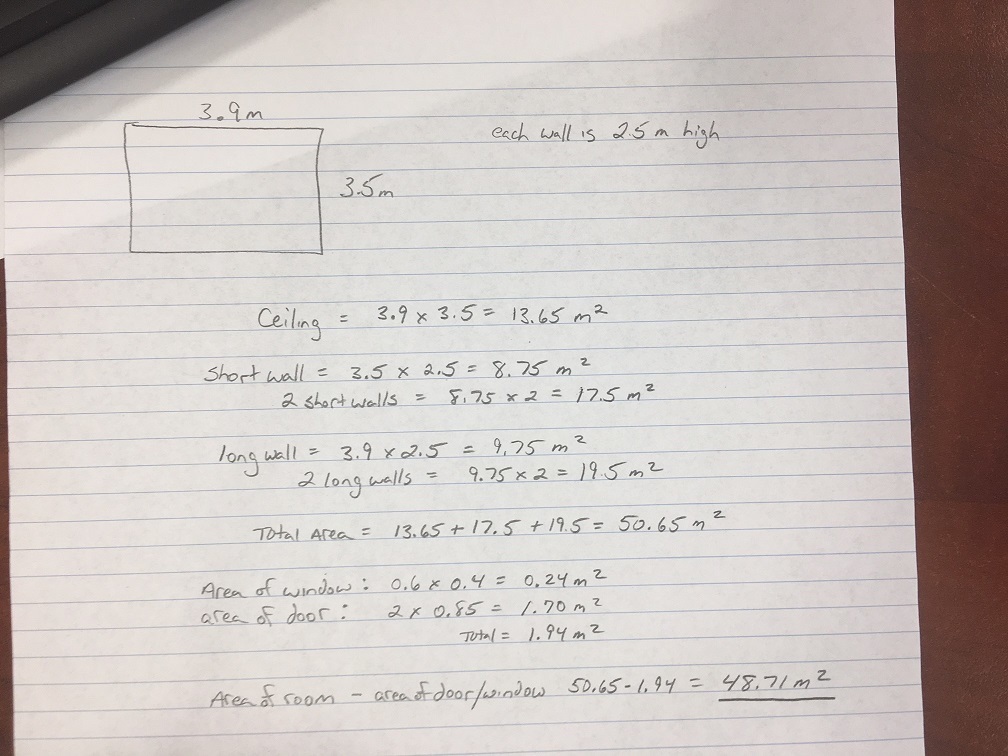 3.9m
each wall is 2.5 m high
3.5m
Ceiling = 3.9 x 3.5 = 13.65 m²
Short wall = 3.5 x 2.5 = 8.75 m²
2 short walls = 8.75 x 2 = 17.5 m²
long wall = 3.9 x 2.5 = 9.75 m²
2 long walls = 9.75 x 2 = 19.5 m²
Total Area = 13.65 + 17.5 + 19.5 = 50.65 m²
Area of window: 0.6 x 0.4 = 0.24 m²
area of door: 2 x 0.85 = 1.70 m²
Total = 1.94 m²
Area of room - area of door/window 50.65 - 1.94 = 48.71 m²